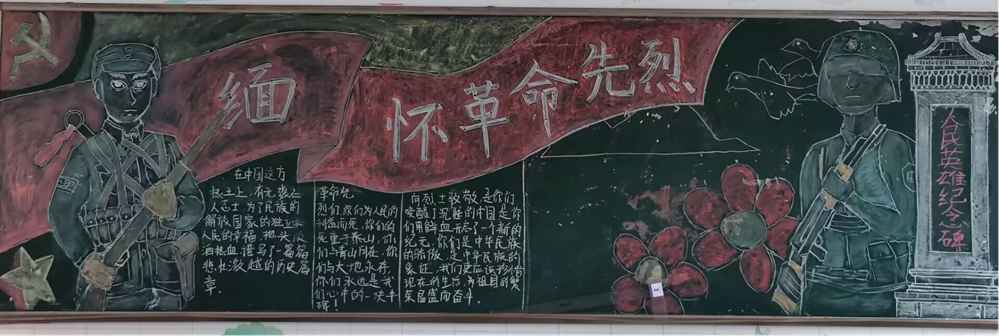 缅怀革命先烈
在中国这方
热土上,有无数仁
人志士为了民族的
解放国家的独立
人民的幸福,抛头颅
洒热血,谱写了一篇篇
悲壮激越的历史篇
章。
革命先
烈们,你们为人民的
利益而死,你们的
死重于泰山,你
们与青山同在,你
们与大地永存,
你们永远是我
们心中的一块丰
碑。
向烈士致敬,是你们
唤醒了沉睡的中国,是你
们用鲜血开启了一个新的
纪元,你们是中华民族
的骄傲,是中华民族的
象征,我们更应该珍惜
现在的生活,为祖国的繁
荣昌盛而奋斗。
人民英雄纪念碑